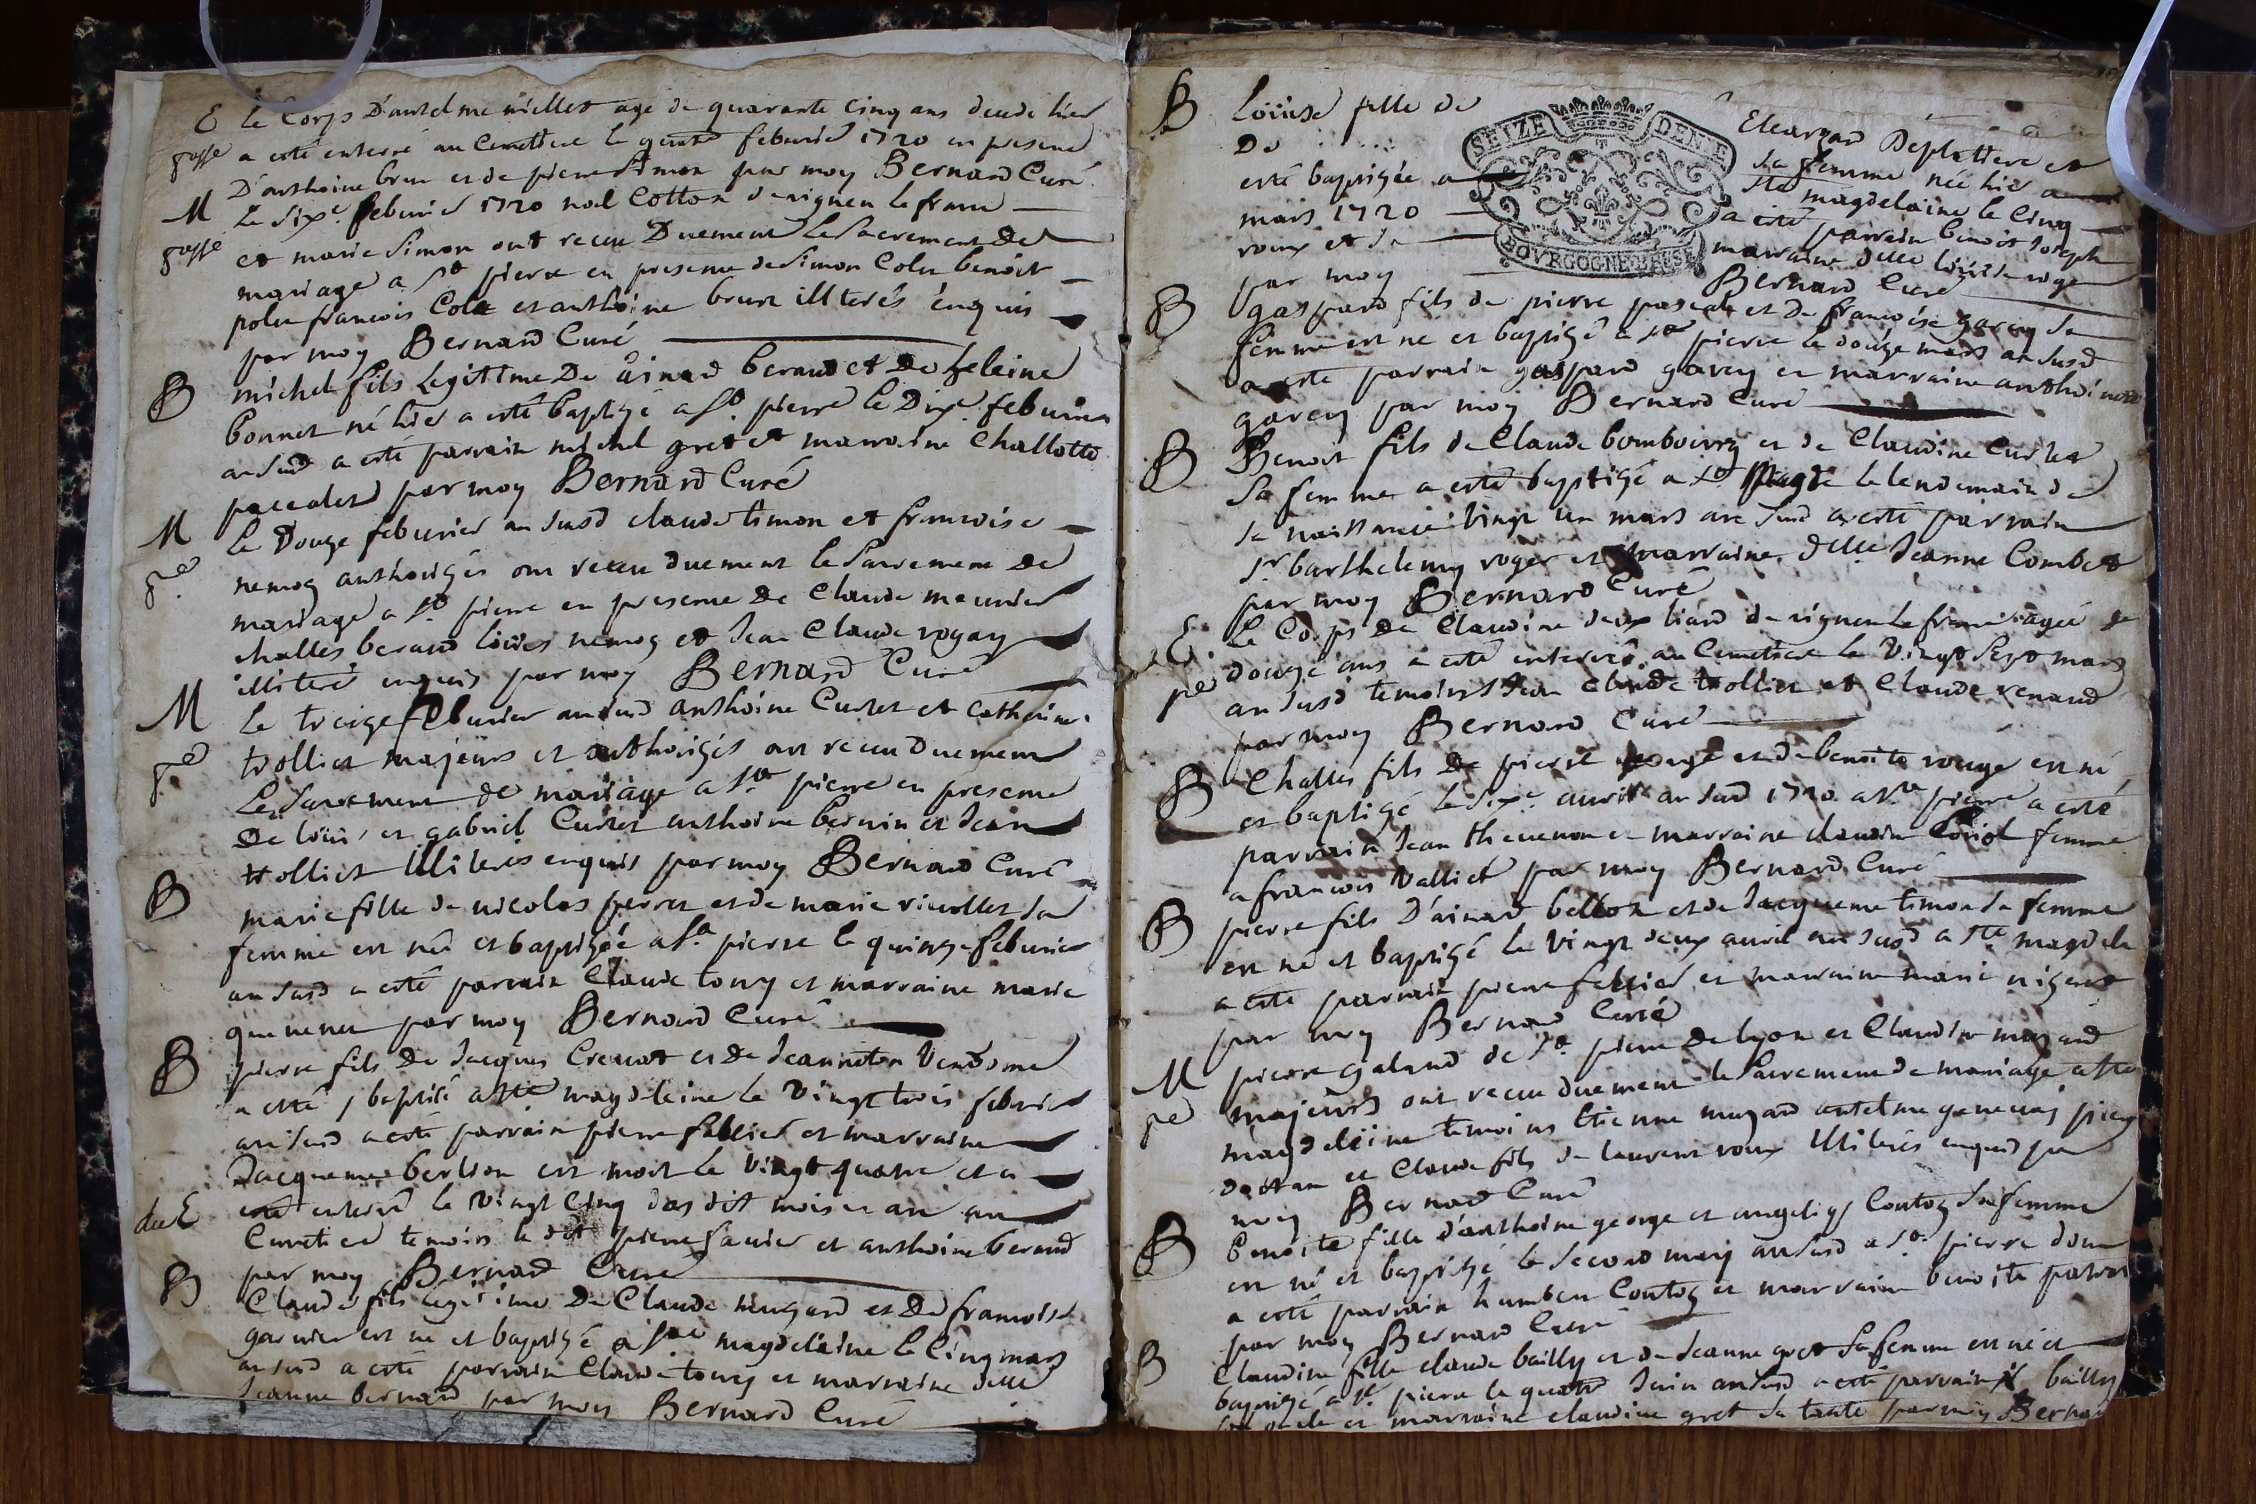 E le Corps D'antelme niellet age de quarante cinq ans decede hier
gosse a esté enterré au Cemettiere le quatre feburier 1720 en presence
D'anthoine brun et de pierre Simon par moy Bernard Curé
M Le Sixe. feburier 1720 noel Cotton de rigneu le franc
gosse et marie Simon ont receu Duement Le Sacrement De
mariage a St pierre en presence de Simon Colu benoit
polu francois Cola et anthoine brun illiterés enquis
par moy Bernard Curé
B michel fils Legitime De ainard beraud et De heleine
bonnet né hier a esté baptizé a St. pierre le Dixe. feburier
an susd a esté parrain michel gret et marraine Challotte
paccalet par moy Bernard Curé
M Le Douze feburier an susd claude timon et francoise
ge nemoz authorizés ont receu duement le Sacrement De
mariage a St pierre en presence De Claude meunier
challes beraud loüis nemoz et Jean Claude rogay
illiteré enquis par moy Bernard Curé
M Le treize feburier an susd anthoine Curtet et Catherine
ge trolliet majeurs et authorizés ont receu duement
Le Sacrement de mariage a St. pierre en presence
De loüis et gabriel Curtet anthoine bernin et Jean
trolliet illiterés enquis par moy Bernard Curé
B marie fille de nicolas perret et de marie rivollet sa
femme est née et baptizée a St. pierre le quinze feburier
an susd a esté parrain Claude toury et marraine marie
quenenet par moy Bernard Curé
B pierre fils De Jacques Crevat et De Jeanneton Vendome
a esté baptisé a Ste magdeleine le Vingt trois febvrier
an susd a esté parrain pierre fabvier et marraine
Jacqueme berlion est mort le Vingt quatre et a
du E esté enterré le Vingt Cinq des dit mois et an au
Cemetiere temoins le dit pierre favier et anthoine beraud
par moy Bernard Curé
B Claude fils legitime De Claude muzard et De francoise
garnier est né et baptizé a Ste magdelaine le Cinq mars
an susd a esté parrain Claude toury et marraine dlle
Jeanne bernard par moy Bernard Curé
B Loüise fille de Eleazard Deplattiere et
De ..... sa femme née hier a
esté baptizée a Ste magdelaine le Cinq
mars 1720 a esté parrain benoit Joseph
roux et de marraine delle loüise roger
par moy Bernard Curé
SEIZE DENIE
BOURGOGNE BRESSE
B gaspard fils de pierre pascal et De francoise garcy Sa
femme est né et baptizé a St pierre le douze mars an susd
a esté parrain gaspard garcy et marraine anthoinette
garcy par moy Bernard Curé
B Benoit fils de Claude bombourg et de Claudine Curtet
Sa femme a esté baptizé a Ste Magde le lendemain de
sa naissance Vingt un mars an susd a esté parrain
Sr barthelemy roger et marraine delle Jeanne Combet
par moy Bernard Curé
E. Le Corps De Claudine deux liard de rigneu le franc agée de
ge douze ans a esté enterré au Cemetiere le Vingt Sept mars
an susd temoins Jean Claude trolliet et Claude renard
par moy Bernard Curé
B Challes fils De pierre rougé et de benoite rougé est né
et baptizé le sixe. avril an susd 1720 a St. pierre a esté
parrain Jean thevenon et marraine claudine Loriol femme
a francois Valliet par moy Bernard Curé
B pierre fils D'ainard bellon et de Jacqueme timon sa femme
est né et baptizé le Vingt deux avril an susd a Ste magdele
a esté parrain pierre fabvier et marraine marie nizeret
par moy Bernard Curé
M pierre galand de St. pierre De lyon et Claudine muzard
ge majeurs ont receu duement le Sacrement de mariage a Ste
magdeleine temoins Etienne muzard antelme genevay pierre
et Claude fils de laurent roux illiterés enquis par
moy Bernard Curé
B Benoite fille d'anthoine george et Contoz sa femme
est né et baptizé le Second may an susd a St. pierre dont
a esté parrain humbert Contoz et marraine benoite
par moy Bernard Curé
B Claudine fille claude bailly et de Jeanne gret Sa femme est né et
baptizé a St. pierre le quatre Juin an susd a esté parrain bailly
son oncle et marraine claudine gret sa tante par moy Bernard